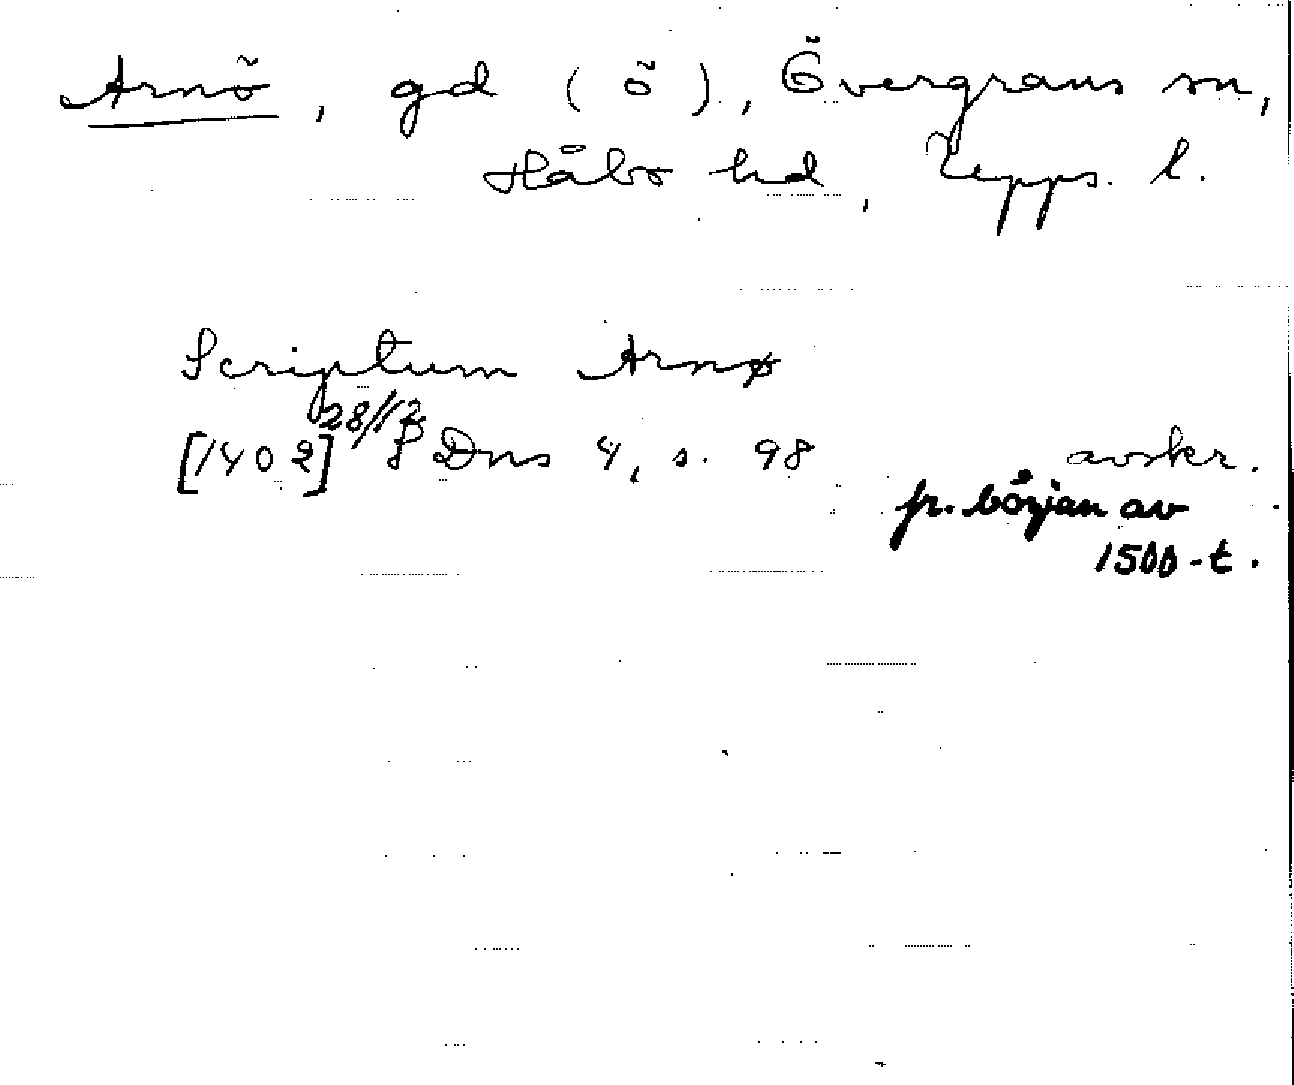 Arnö, gd (ö), Övergrans sn,
Håbo hd, Upps. l.
Scriptum Arnø
[1402] 28/12 Dns 4, s. 98 avskr.
fr. början av
1500-t.